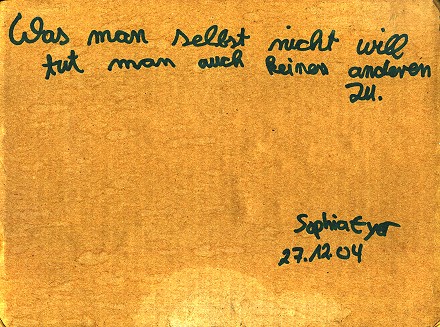 Was man selbst nicht will
tut man auch keinen anderen
zu.
Sophia Eyer
27.12.04